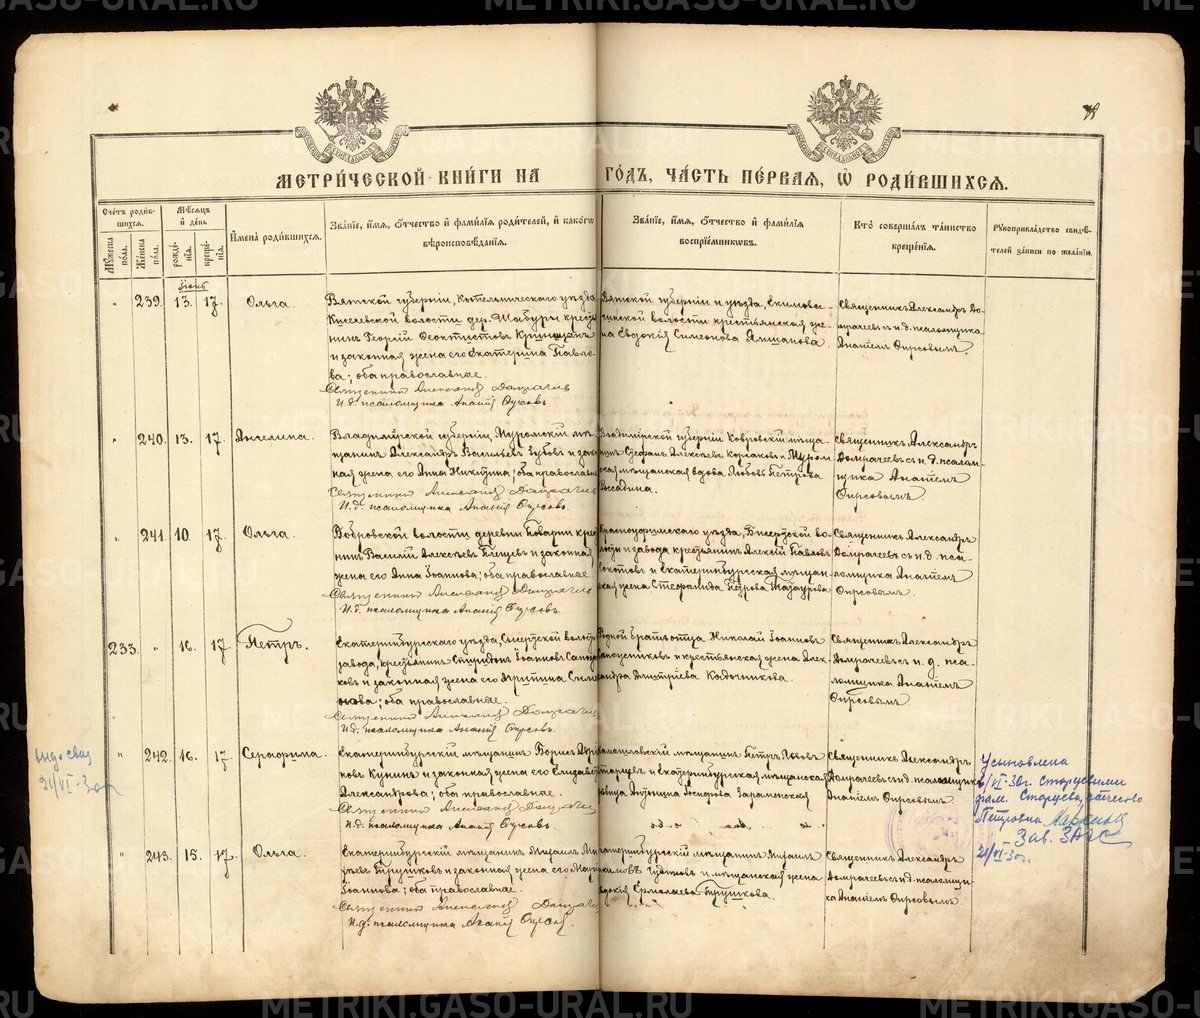 МЕТРИ́ЧЕСКОЙ КНИ́ГИ НА ГО́ДЪ, ЧА́СТЬ ПЕ́РВАЯ, Ѡ РОДИ́ВШИХСЯ.
Сче́тъ роди́вшихся.
Му́жеска по́ла.
Же́нска по́ла.
Мѣ́сяцъ и де́нь
рожде́нія.
креще́нія.
Имена̀ роди́вшихся.
Зва́ніе, и́мя, о́тчество и фами́лія роди́телей, и како́гѡ
вѣроисповѣ́данія.
Зва́ніе, и́мя, о́тчество и фами́лія
воспріе́мникѡвъ.
Кто̀ соверша́лъ та́инство
креще́нія.
Рукоприкла́дство свидѣ́-
телей за́писи по жела́нію.
Іюнь
" 239. 13. 17. Ольга.
Вятской губерніи, Котельническаго уѣзда
Киселевской волости дер. Шабуры кресть
нинъ Георгій Ѳеоктистовъ
и законная жена его Екатерина Павло-
ва; оба православные.
Священникъ Александръ Домрачевъ
И.д. псаломщика Ананій Ѳирсовъ
Вятской губерніи и уѣзда,
волости крестьянская же-
на Евдокія Симеонова Ямшанова.
Священникъ Александръ До-
мрачевъ съ и. д. псаломщика
Ананіемъ Ѳирсовымъ.
" 240. 13. 17. Ангелина.
Владимірской губерніи, Муромскій мѣ-
щанинъ Александръ Васильевъ Зубовъ и закон
ная жена его Анна Никитина; оба православные
Священникъ Александръ Домрачевъ
И.д. псаломщика Ананій Ѳирсовъ.
Владимірской губерніи Ковровскій мѣща-
нинъ Стефанъ Алексѣевъ Корсаковъ и Муром
ская мѣщанская вдова Любовь Петрова
Россадина.
Священникъ Александръ
Домрачевъ съ и. д. псалом-
щика Ананіемъ
Ѳирсовымъ
" 241. 10. 17. Ольга.
Бобровской волости деревни Поварни кресть
нинъ Василій Алексѣевъ и законная
жена его Анна Іоаннова; оба православные
Священникъ Александръ Домрачевъ
И.д. псаломщика Ананій Ѳирсовъ.
Красноуфимскаго уѣзда, Бисертской во-
лости и завода крестьянинъ Алексѣй Павловъ
и Екатеринбургская мѣщан-
ская жена Стефанида Петрова
Священникъ Александръ
Домрачевъ съ и. д. пса-
ломщика Ананіемъ
Ѳирсовымъ.
233. " 16. 17. Петръ.
Екатеринбургскаго уѣзда, Сысертской волости
завода, крестьянинъ Спиридонъ Іоанновъ Сапож
ковъ и законная жена его Ириина Симе
онова; оба православные.
Священникъ Александръ Домрачевъ
И.д. псаломщика Ананій Ѳирсовъ.
Родной братъ отца Николай Іоанновъ
Сапожниковъ и крестьянская жена Алек-
сандра Димитріева Кадочникова.
Священникъ Александръ
Домрачевъ съ и. д. пса-
ломщика Ананіемъ
Ѳирсовымъ
" 242. 16. 17. Серафима.
Екатеринбургскій мѣщанинъ Борисъ
новъ Кунинъ и законная жена его Елизавета
Александрова; оба православные.
Священникъ Александръ Домрачевъ
И.д. псаломщика Ананій Ѳирсовъ.
мѣщанинъ Петръ Львовъ
и Екатеринбургская мѣщанская
дѣвица Іосифова
Священникъ Александръ
Домрачевъ съ и.д. псаломщика
Ананіемъ Ѳирсовымъ.
выдо свид
21/VI-30г
Усыновлена
21/VI-30г. Старцевыми
фам. Старцева, отчество
Петровна
Зав. ЗАГС
21/VI-30г.
" 243. 15. 17. Ольга.
Екатеринбургскій мѣщанинъ Михаилъ Ми
хайловъ и законная жена его Марія
Іоаннова; оба православные.
Священникъ Александръ Домрачевъ
И.д. псаломщика Ананій Ѳирсовъ.
Екатеринбургскій мѣщанинъ Михаилъ
и мѣщанская жена
Евдокія Ермолаева
Священникъ Александръ
Домрачевъ съ и.д. псаломщи-
ка Ананіемъ Ѳирсовымъ.
METRIKI.GASO-URAL.RU